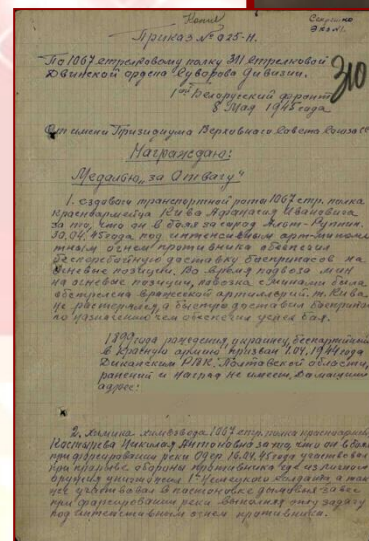 Копия
Секретно
Экз. №1.
Приказ № 025-Н.
310
По 1067 стрелковому полку 311 стрелковой
Двинской ордена Суворова дивизии.
1ый Белорусский фронт
8 Мая 1945 года
От имени Президиума Верховного Совета Союза ССР
Награждаю:
Медалью „за Отвагу"
1. ездового транспортной роты 1067 стр. полка
красноармейца Кива Афанасия Ивановича
за то, что он в боях за город Альт-Руппин
30.04.45 года, под интенсивным арт-миномет
ным огнем противника обеспечил
бесперебойную доставку боеприпасов на
огневые позиции. Во время подвоза мин
на огневые позиции, повозка с минами была
обстреляна вражеской артиллерией. т. Кива
не растерялся, а быстро доставил боеприпасы
по назначению чем обеспечил успех боя.
1899 года рождения, украинец, беспартийный
В Красную армию призван 1.04.1944 года
Диканским РВК, Полтавской области,
ранений и наград не имеет. Домашний
адрес:
2. химика химвзвода 1067 стр. полка красноармейца
Николая Антоновича за то, что он в боях
при форсировании реки Одер 16.04.45 года участвовал
при прорыве обороны противника где из личного
оружия уничтожил 1 немецкого солдата, а так
же участвовал в постановке дымовых завес
при форсировании реки выполняя эту задачу
под интенсивным огнем противника.